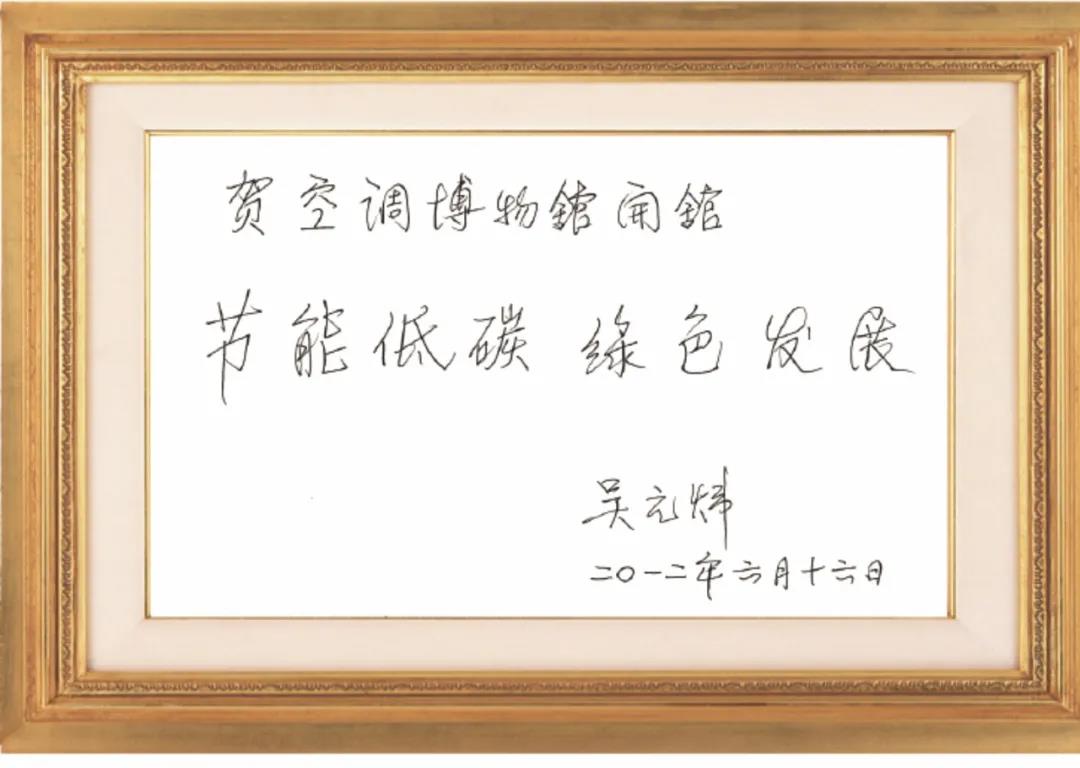 贺空调博物舘开舘
节能低碳 綠色发展
吴元炜
二〇一二年六月十六日